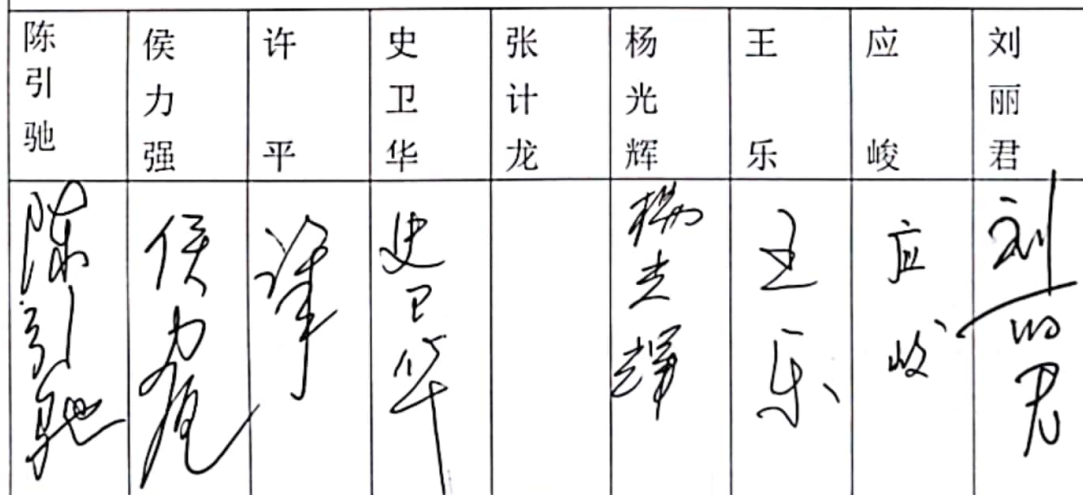 陈引驰
侯力强
许平
史卫华
张计龙
杨光辉
王乐
应峻
刘丽君
陈引驰
侯力强
许平
史卫华
杨光辉
王乐
应峻
刘丽君